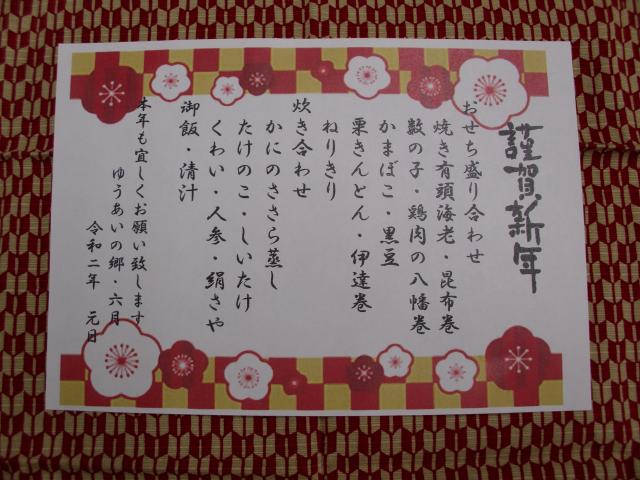 謹賀新年
おせち盛り合わせ
焼き有頭海老・昆布巻
数の子・鶏肉の八幡巻
かまぼこ・黒豆
栗きんとん・伊達巻
ねりきり
炊き合わせ
かにのささら蒸し
たけのこ・しいたけ
くわい・人参・絹さや
御飯・清汁
本年も宜しくお願い致します
ゆうあいの郷・六月
令和二年　元日